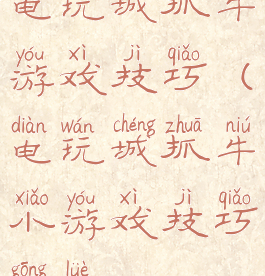 电玩城抓牛
yóu xì jì qiǎo
游戏技巧（
diàn wán chéng zhuā niú
电玩城抓牛
xiǎo yóu xì jì qiǎo
小游戏技巧
gōng lüè